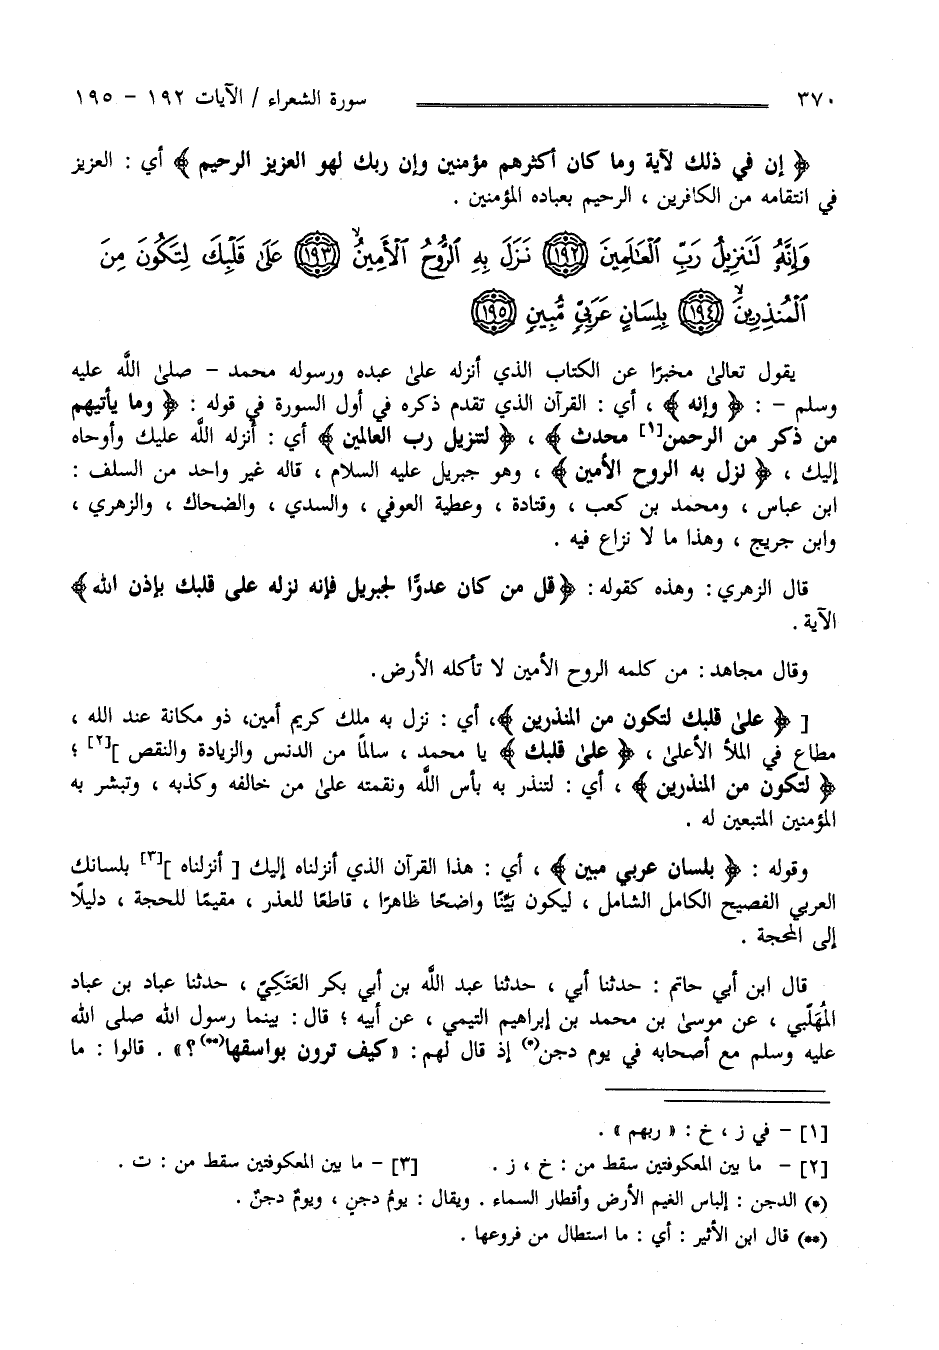 ٣٧٠ سورة الشعراء / الآيات ١٩٢ – ١٩٥
﴿ إن في ذلك لآية وما كان أكثرهم مؤمنين وإن ربك لهو العزيز الرحيم ﴾ أي : العزيز
في انتقامه من الكافرين ، الرحيم بعباده المؤمنين .
وَإِنَّهُۥ لَتَنزِيلُ رَبِّ ٱلْعَـٰلَمِينَ ﴿١٩٢﴾ نَزَلَ بِهِ ٱلرُّوحُ ٱلْأَمِينُ ﴿١٩٣﴾ عَلَىٰ قَلْبِكَ لِتَكُونَ مِنَ
ٱلْمُنذِرِينَ ﴿١٩٤﴾ بِلِسَانٍ عَرَبِىٍّ مُّبِينٍ ﴿١٩٥﴾
يقول تعالىٰ مخبرًا عن الكتاب الذي أنزله علىٰ عبده ورسوله محمد – صلىٰ اللَّه عليه
وسلم – : ﴿ وإنه ﴾ ، أي : القرآن الذي تقدم ذكره في أول السورة في قوله : ﴿ وما يأتيهم
من ذكر من الرحمن[١] محدث ﴾ ، ﴿ لتنزيل رب العالمين ﴾ أي : أنزله اللَّه عليك وأوحاه
إليك ، ﴿ نزل به الروح الأمين ﴾ ، وهو جبريل عليه السلام ، قاله غير واحد من السلف :
ابن عباس ، ومحمد بن كعب ، وقتادة ، وعطية العوفي ، والسدي ، والضحاك ، والزهري ،
وابن جريج ، وهذا ما لا نزاع فيه .
قال الزهري : وهذه كقوله : ﴿قل من كان عدوًّا لجبريل فإنه نزله على قلبك بإذن الله﴾
الآية .
وقال مجاهد : من كلمه الروح الأمين لا تأكله الأرض .
[ ﴿ علىٰ قلبك لتكون من المنذرين ﴾، أي : نزل به ملك كريم أمين، ذو مكانة عند الله ،
مطاع في الملأ الأعلىٰ ، ﴿ علىٰ قلبك ﴾ يا محمد ، سالمًا من الدنس والزيادة والنقص ][٢] ؛
﴿ لتكون من المنذرين ﴾ ، أي : لتنذر به بأس اللَّه ونقمته علىٰ من خالفه وكذبه ، وتبشر به
المؤمنين المتبعين له .
وقوله : ﴿ بلسان عربي مبين ﴾ ، أي : هذا القرآن الذي أنزلناه إليك [ أنزلناه ][٣] بلسانك
العربي الفصيح الكامل الشامل ، ليكون بيِّنًا واضحًا ظاهرًا ، قاطعًا للعذر ، مقيمًا للحجة ، دليلًا
إلى المحجة .
قال ابن أبي حاتم : حدثنا أبي ، حدثنا عبد اللَّه بن أبي بكر العَتَكِيّ ، حدثنا عباد بن عباد
المُهَلَّبي ، عن موسىٰ بن محمد بن إبراهيم التيمي ، عن أبيه ؛ قال : بينما رسول الله صلى الله
عليه وسلم مع أصحابه في يوم دجن(*) إذ قال لهم : «كيف ترون بواسقها(**)؟» . قالوا : ما
[١] – في ز ، خ : « ربهم » .
[٢] – ما بين المعكوفتين سقط من : خ ، ز . [٣] – ما بين المعكوفتين سقط من : ت .
(*) الدجن : إلباس الغيم الأرض وأقطار السماء . ويقال : يومُ دجنٍ ، ويومٌ دجنٌ .
(**) قال ابن الأثير : أي : ما استطال من فروعها .